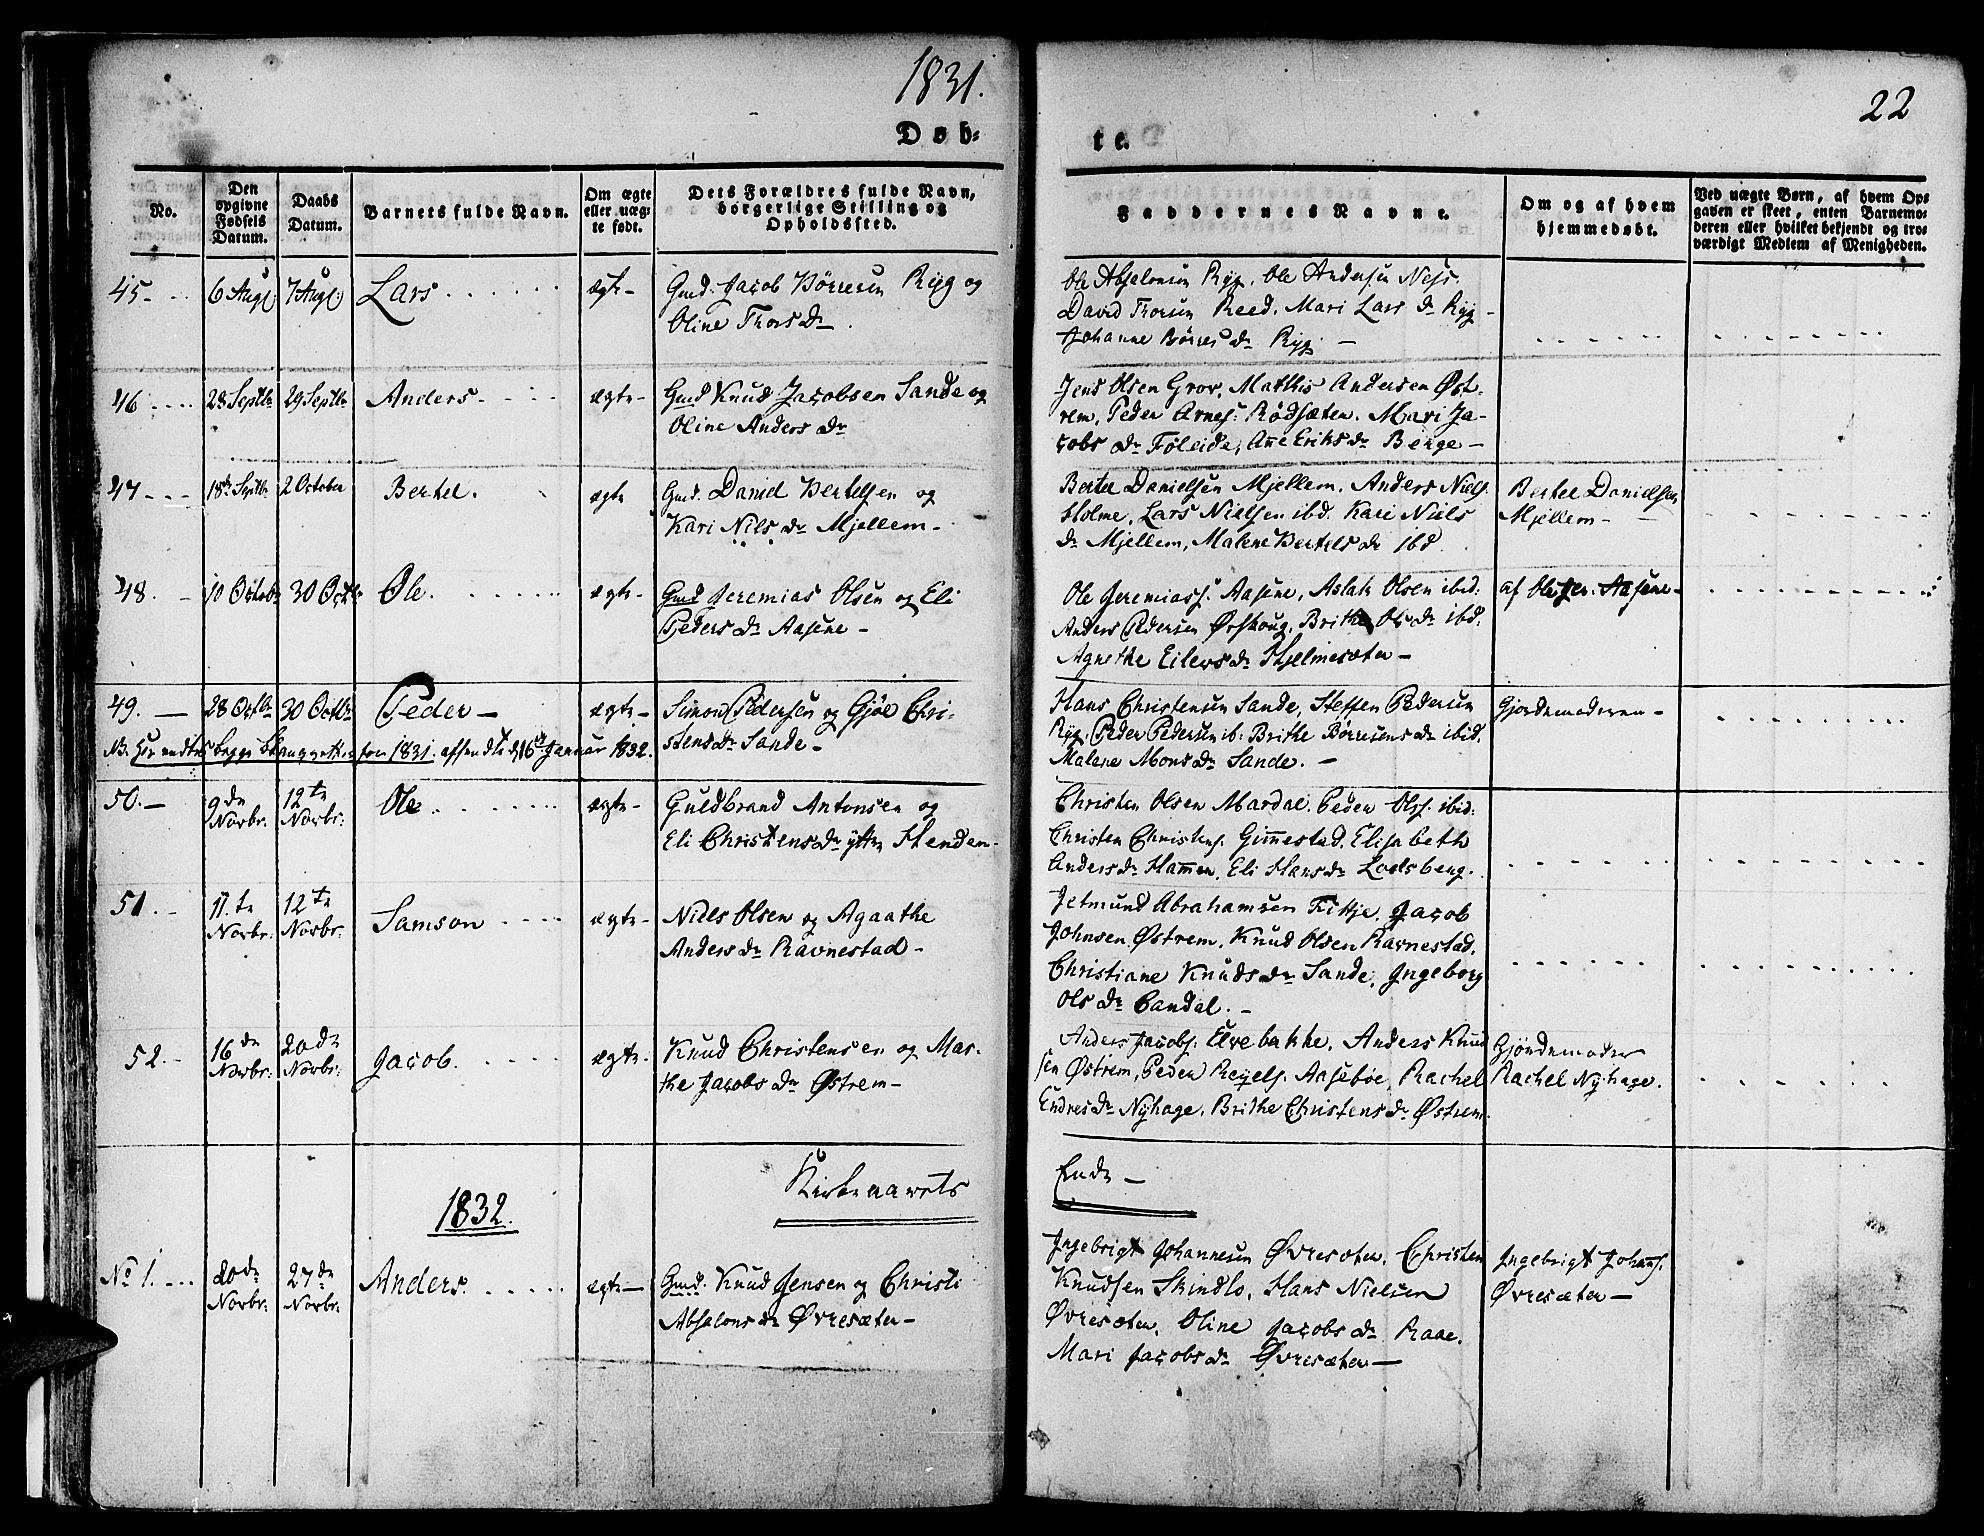 1831.
22
Døb-
te.
No.
Den
opgivne
Fødsels
Datum.
Daabs
Datum.
Barnets fulde Navn.
Om ægte
eller uæg-
te født.
Dets Forældres fulde Navn,
borgerlige Stilling og
Opholdssted.
Faddernes Navne.
Om og af hvem
hjemmedøbt.
Ved uægte Børn, af hvem Op-
gaven er skeet, enten Barnemo-
deren eller hvilket bekjendt og tro-
værdigt Medlem af Menigheden.
45. 6 Aug. 7 Aug. Lars ægte
Gmd. Jacob Børresen Ryg og
Oline Thors Dr.
Ole Absalonsen Ryg. Ole Andersen Ness.
David Thorsen Reed. Mari Lars Dr Ryg
Johanne Børres Dr Ryg
46. 28 Septbr 29 Septbr Anders ægte
Gmd Knud Jacobsen Sande og
Oline Anders Dr
Jens Olsen Grov, Matthis Andersen Øst-
rem, Peder Arnes: Rødsæten. Mari Ja-
cobs Dr Føleide, Ane Eriks Dr Berge
47 18de Septbr 2 October Bertel. ægte
Gmd. Daniel Bertelsen og
Kari Nils Dr Mjellem
Bertel Danielsen Mjellem, Anders Niels.
Holme, Lars Nielsen ibd. Kari Niels
Dr Mjellem, Malene Bertels Dr ibd.
Bertel Danielsen
Mjellem
48. 10 Octob 30 Octbr Ole. ægte
Gmd Jeremias Olsen og Eli
Peders Dr Aasene
Ole Jeremiass. Aasene, Aslak Olsen ibid:
Anders Pedersen Ørskoug, Brithe Ols Dr ibd.
Agnethe Eilers Dr Hjelmesæter
af Ole Jer. Aasene
49. 28 Octbr 30 Octbr Peder ægte
Simon Pedersen og Gjøe Chri-
stens Dr Sande
NB. Her endtes for 1831. afsendte d. 16de Januar 1832.
Hans Christensen Sande, Steffen Pedersen
Ryg. Peder Pedersen ib. Brithe Børresens Dr ibid.
Malene Mons Dr Sande.
Gjordemoderen
50. 9de Novbr. 12te Novbr: Ole ægte
Guldbrand Antonsen og
Eli Christens Dr ytre Henden
Christen Olsen Mardal. Peder Ols. ibid:
Christen Christens. Gimmestad, Elisabeth
Anders Dr Hammen, Eli Hans Dr Lodsberg.
51. 11.te Novbr. 12te Novbr: Samson ægte
Niels Olsen og Agaathe
Anders Dr Ravnestad
Jetmund Abrahamsen Fitje. Jacob
Johnsen Østrem, Knud Olsen Ravnestad,
Christiane Knuds Dr Sande, Ingeborg
Ols Dr Candal.
52. 16de Novbr: 20de Novbr: Jacob. ægte
Knud Christensen og Mar-
the Jacobs Dr Østrem
Anders Jacobs. Elvebakke, Anders Knud
sen Østrem, Peder Reyels. Aasebøe, Rachel
Endres Dr Nyhage, Brithe Christens Dr Østrem.
Gjordemoder
Rachel Nyhage.
Kirkeaarets
Ende
1832.
No 1. 20de Novbr: 27de Novbr: Anders. ægte
Gmd. Knud Jensen og Christi
Absalons Dr Øvresæter
Ingebrigt Johannesen Øvresæter, Christen
Knudsen Skindlo, Hans Nielsen
Øvresæter, Oline Jacobs Dr Raae.
Mari Jacobs Dr Øvresæter
Ingebrigt Johans.
Øvresæter